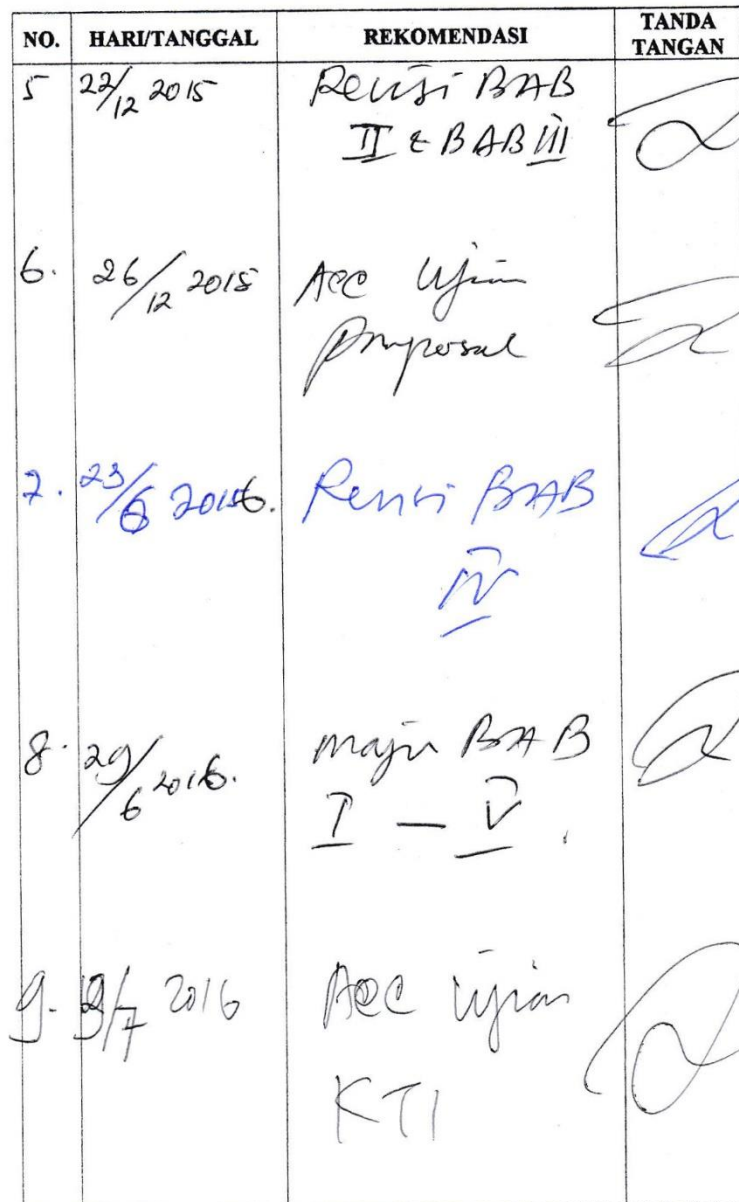 NO. HARI/TANGGAL REKOMENDASI TANDA TANGAN
5 22/12 2015 Revisi BAB
II & BAB III
6. 26/12 2015 Acc Ujian
proposal
7. 23/6 2016. Revisi BAB
IV
8. 29/6 2016. maju BAB
I — V.
9. /7 2016 Acc Ujian
KTI